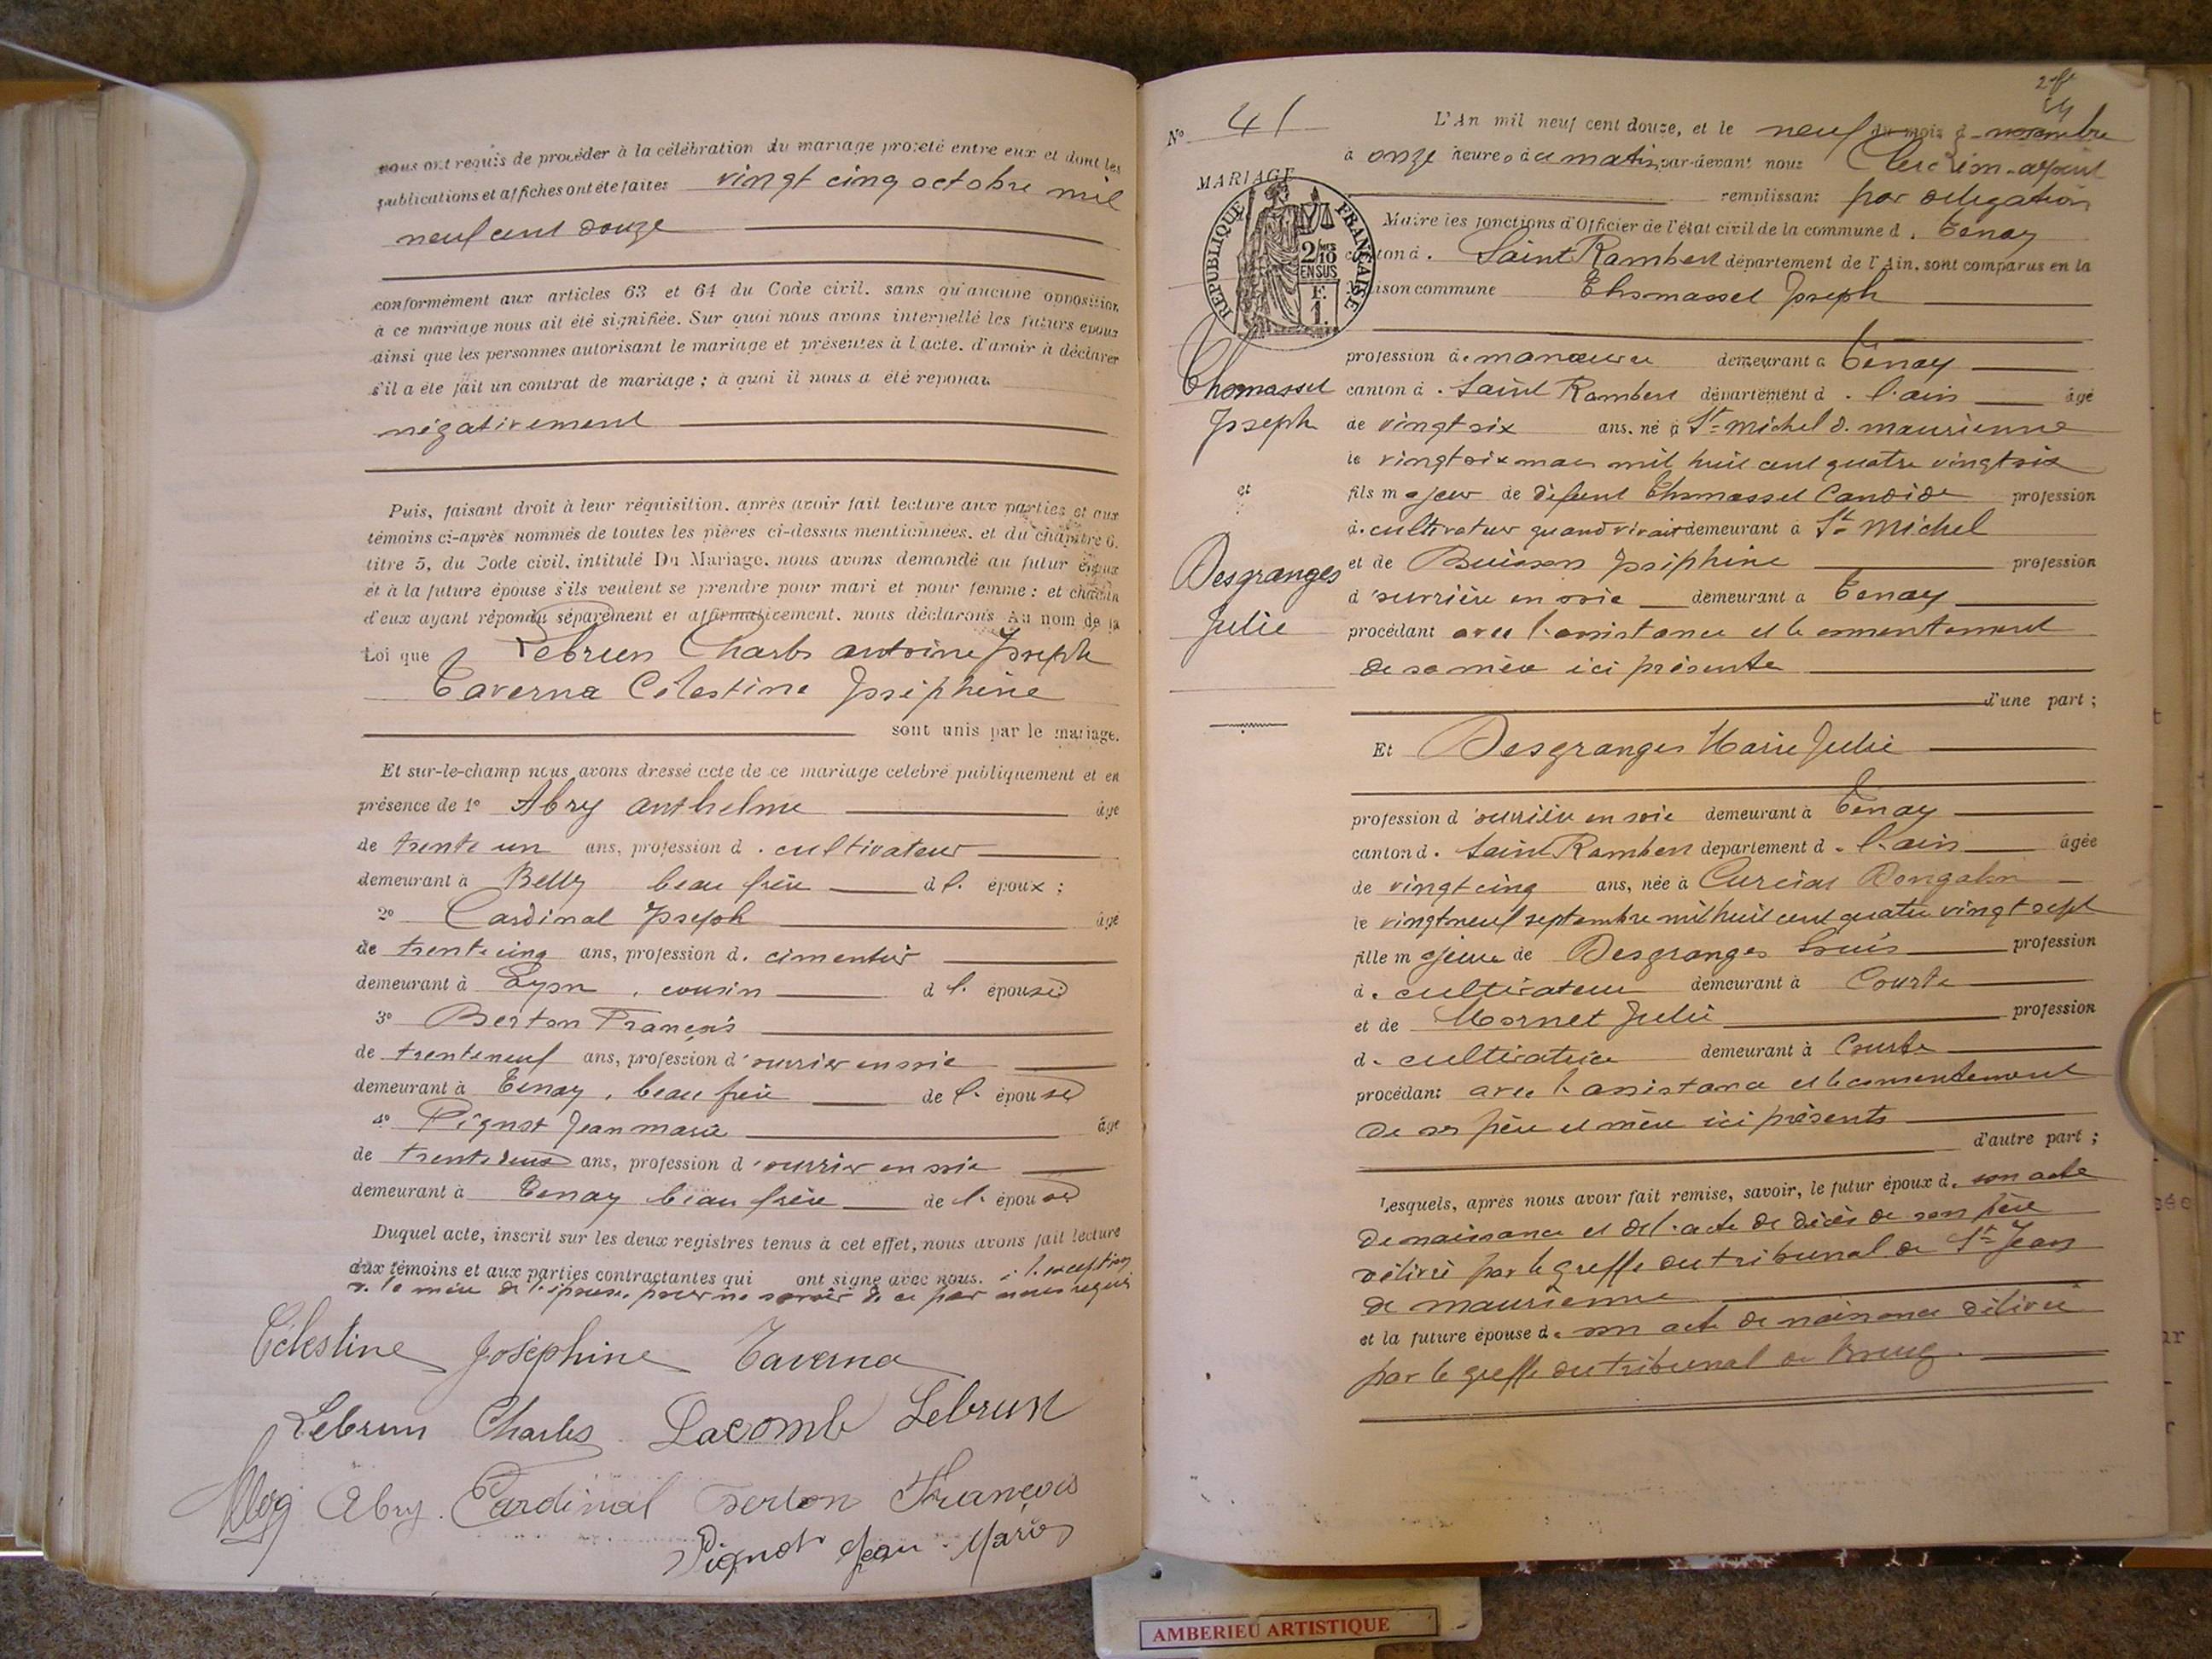 nous ont requis de procéder à la célébration du mariage projeté entre eux et dont les
publications et affiches ont été faites vingt cinq octobre mil
neuf cent douze
conformément aux articles 63 et 64 du Code civil, sans qu'aucune opposition
à ce mariage nous ait été signifiée. Sur quoi nous avons interpellé les futurs époux
ainsi que les personnes autorisant le mariage et présentes à l'acte, d'avoir à déclarer
s'il a été fait un contrat de mariage ; à quoi il nous a été répondu
négativement
Puis, faisant droit à leur réquisition, après avoir fait lecture aux parties et aux
témoins ci-après nommés de toutes les pièces ci-dessus mentionnées, et du chapitre 6,
titre 5, du Code civil, intitulé Du Mariage, nous avons demandé au futur époux
et à la future épouse s'ils veulent se prendre pour mari et pour femme ; et chacun
d'eux ayant répondu séparément et affirmativement, nous déclarons Au nom de la
Loi que Lebrun Charles antoine Joseph
Taverna Célestine Joséphine
sont unis par le mariage.
Et sur-le-champ nous avons dressé acte de ce mariage célébré publiquement et en
présence de 1° Abry anthelme âgé
de trente un ans, profession d. cultivateur
demeurant à Belly beau frère d l. époux ;
2° Cardinal Joseph âgé
de trente cinq ans, profession d. cimentier
demeurant à Lyon, cousin d l. épouse
3° Berton François
de trente neuf ans, profession d'ouvrier en soie
demeurant à Tenay, beau frère de l. épouse
4° Pignot Jean marie âgé
de trente deux ans, profession d'ouvrier en soie
demeurant à Tenay beau frère de l. épouse
Duquel acte, inscrit sur les deux registres tenus à cet effet, nous avons fait lecture
aux témoins et aux parties contractantes qui ont signé avec nous. à l. exception
d. la mère de l'épouse, pour ne savoir de ce par nous requis
Célestine Joséphine Taverna
Lebrun Charles Lacomb Lebrun
Abry Cardinal Berton François
Pignot Jean-Marie
N° 41
MARIAGE
REPUBLIQUE FRANÇAISE
2/10 EN SUS
F. 1.
Thomasset
Joseph
et
Desgranges
Julie
L'An mil neuf cent douze, et le neuf du mois d novembre
à onze heures du matin par-devant nous
remplissant par délégation
Maire les fonctions d'Officier de l'état civil de la commune d. Tenay
canton d. Saint Rambert département de l'Ain, sont comparus en la
maison commune Thomasset Joseph
profession d. manœuvre demeurant à Tenay
canton d. Saint Rambert département d. l'ain âgé
de vingt six ans, né à St michel d. maurienne
le vingt six mars mil huit cent quatre vingt six
fils majeur de défunt Thomasset Candide profession
d. cultivateur quand vivait demeurant à St Michel
et de Buisson Joséphine profession
d'ouvrière en soie demeurant à Tenay
procédant avec l'assistance et le consentement
de sa mère ici présente
d'une part ;
Et Desgranges Marie Julie
profession d'ouvrière en soie demeurant à Tenay
canton d. Saint Rambert département d. l'ain âgée
de vingt cinq ans, née à Curciat Dongalon
le vingt neuf septembre mil huit cent quatre vingt sept
fille majeure de Desgranges Louis profession
d. cultivateur demeurant à Courte
et de Mornet Julie profession
d. cultivatrice demeurant à Courte
procédant avec l'assistance et le consentement
de ses père et mère ici présents
d'autre part ;
Lesquels, après nous avoir fait remise, savoir, le futur époux d. son acte
de naissance et de l'acte de décès de son père
délivré par le greffe du tribunal de St Jean
de maurienne
et la future épouse d. son acte de naissance délivré
par le greffe du tribunal de Bourg.
AMBERIEU ARTISTIQUE